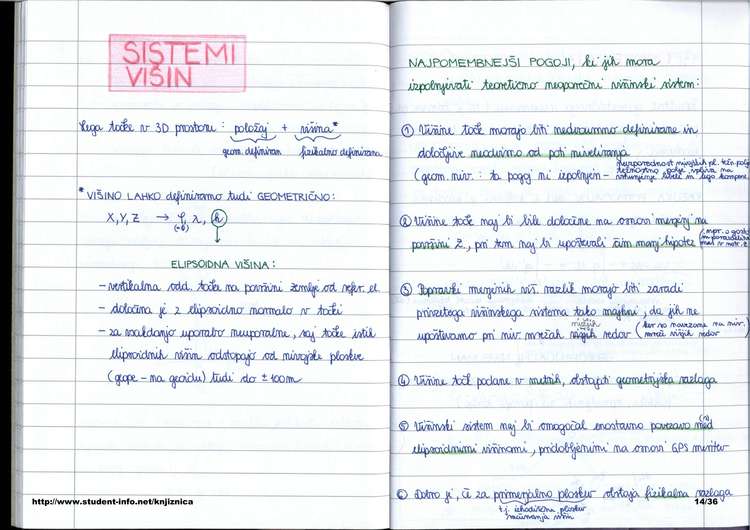 SISTEMI
VIŠIN
Lega točke v 3D prostoru : položaj + višina*
geom. definiran fizikalno definirana
* VIŠINO LAHKO definiramo tudi GEOMETRIČNO:
X,Y,Z → φ, λ, h
ELIPSOIDNA VIŠINA:
- vertikalna odd. točke na površini zemlje od refer. el.
- določena je z elipsoidno normalo v točki
- za vsakdanjo uporabo neuporabne, saj točke istih
elipsoidnih višin odstopajo od nivojske ploskve
(geope - na geoidu) tudi do ±100m
http://www.student-info.net/knjiznica
NAJPOMEMBNEJŠI POGOJI, ki jih mora
izpolnjevati teoretično neoporečni višinski sistem:
① Višine točk morajo biti nedvoumno definirane in
določljive neodvisno od poti niveliranja
(geom. niv. : ta pogoj ni izpolnjen - nevzporednost nivojskih pl. težn. polja
težnostno polje vpliva na
② Višine točk naj bi bile določene na osnovi merjenj na
površini Z., pri tem naj bi upoštevali čim manj hipotez
③ Popravki merjenih viš. razlik morajo biti zaradi
privzetega višinskega sistema tako majhni, da jih ne
nižjih
upoštevamo pri niv. mrežah nižjih redov (ker so navezane na niv.
mreže višjih redov)
④ Višine točk podane v metrih, obstajati geometrijska razlaga
⑤ Višinski sistem naj bi omogočal enostavno povezavo med
elipsoidnimi višinami, pridobljenimi na osnovi GPS meritev
⑥ Dobro je, če za primerjalno ploskev obstaja fizikalna razlaga
t.j. izhodiščna ploskev
računanja višin
14/36